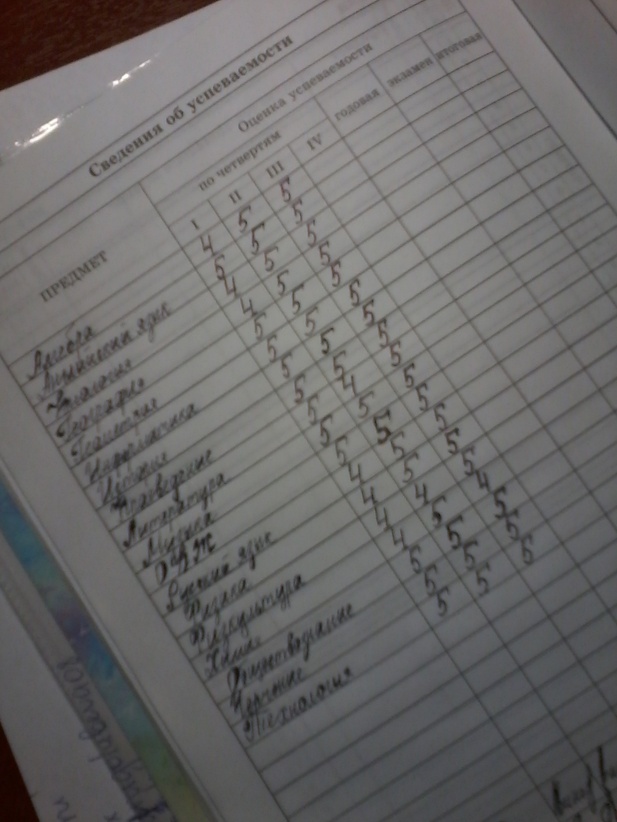 Сведения об успеваемости
ПРЕДМЕТ
Оценка успеваемости
по четвертям
годовая
экзамен
итоговая
I II III IV
Алгебра 4 5 5
Английский язык 5 5 5
Биология 4 5 5
География 4 5 5
Геометрия 5 5 5
Информатика 5 5 5
История 5 5 5
Краеведение 5 5 5
Литература 5 4 5
Музыка 5 5 5
ОБЖ 5 5 5
Русский язык 4 5 5
Физика 4 5 5
Физкультура 4 4 5
Химия 4 5 4
Обществознание 5 5 5
Черчение 5 5 5
Технология 5 5 5